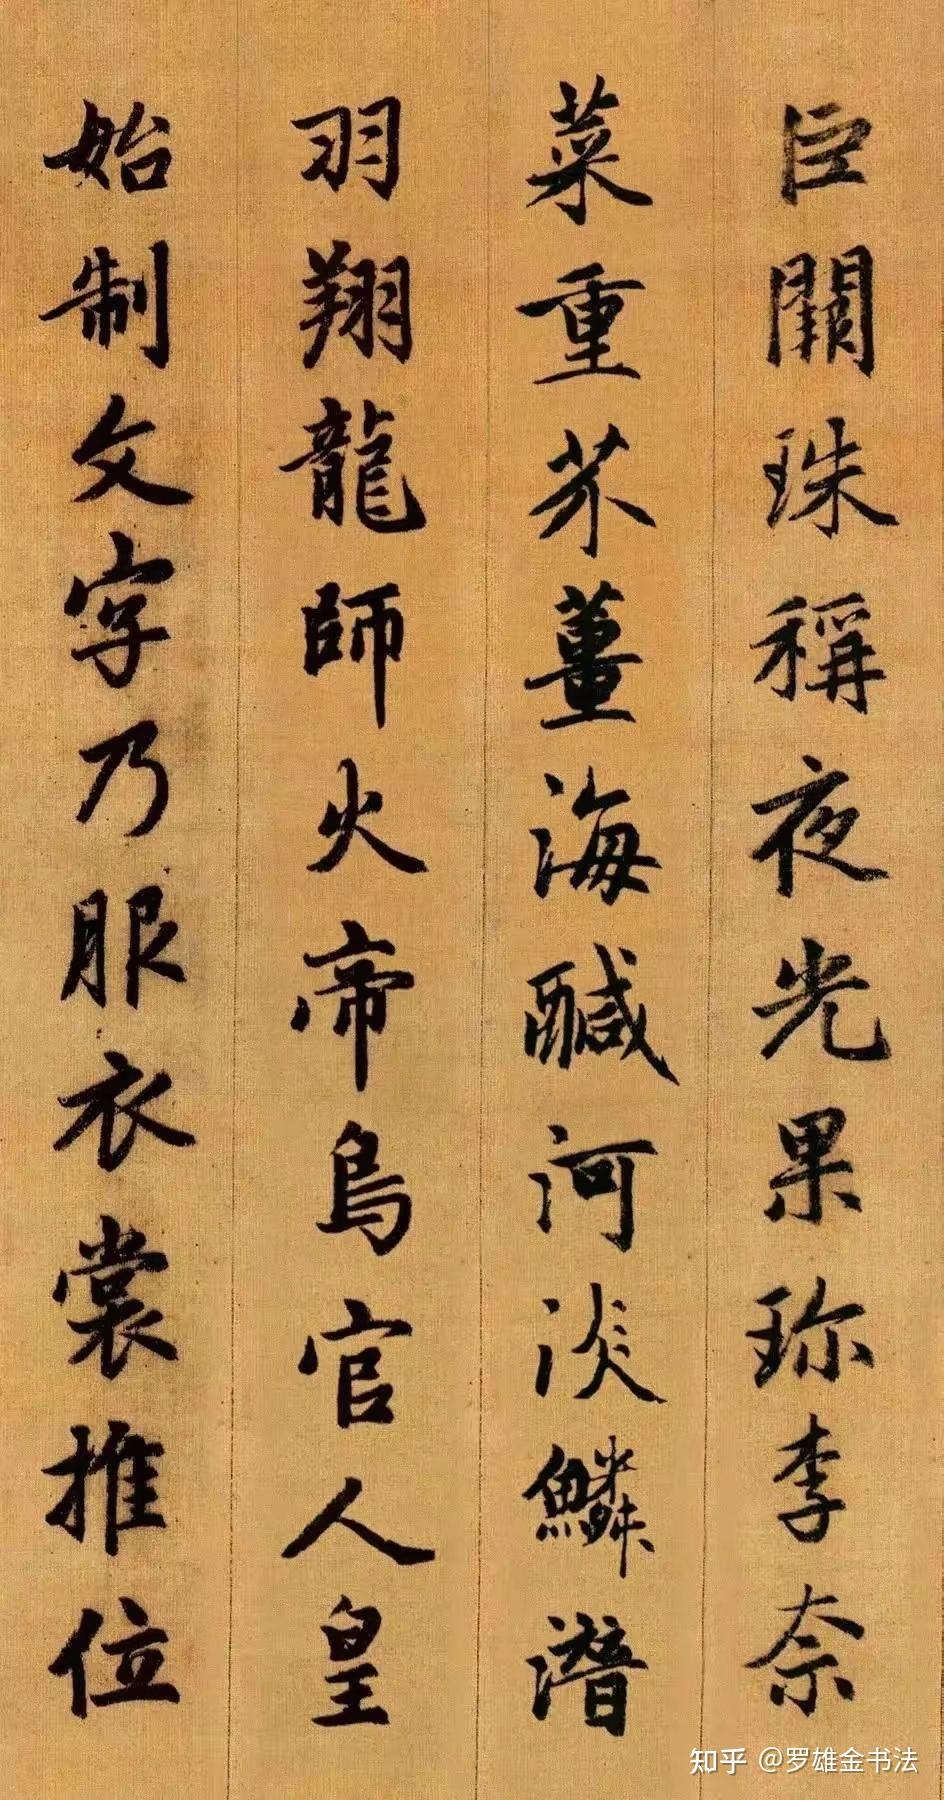 巨闕珠稱夜光果珎李柰
菜重芥薑海鹹河淡鱗潛
羽翔龍師火帝鳥官人皇
始制文字乃服衣裳推位
知乎 @罗雄金书法